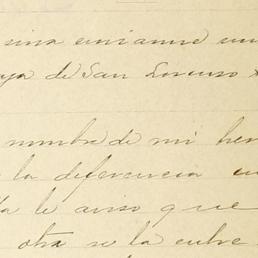 sina enviarme un
de San Lorenzo
nombre de mi her
la diferencia en
le aviso que
otra se la entre